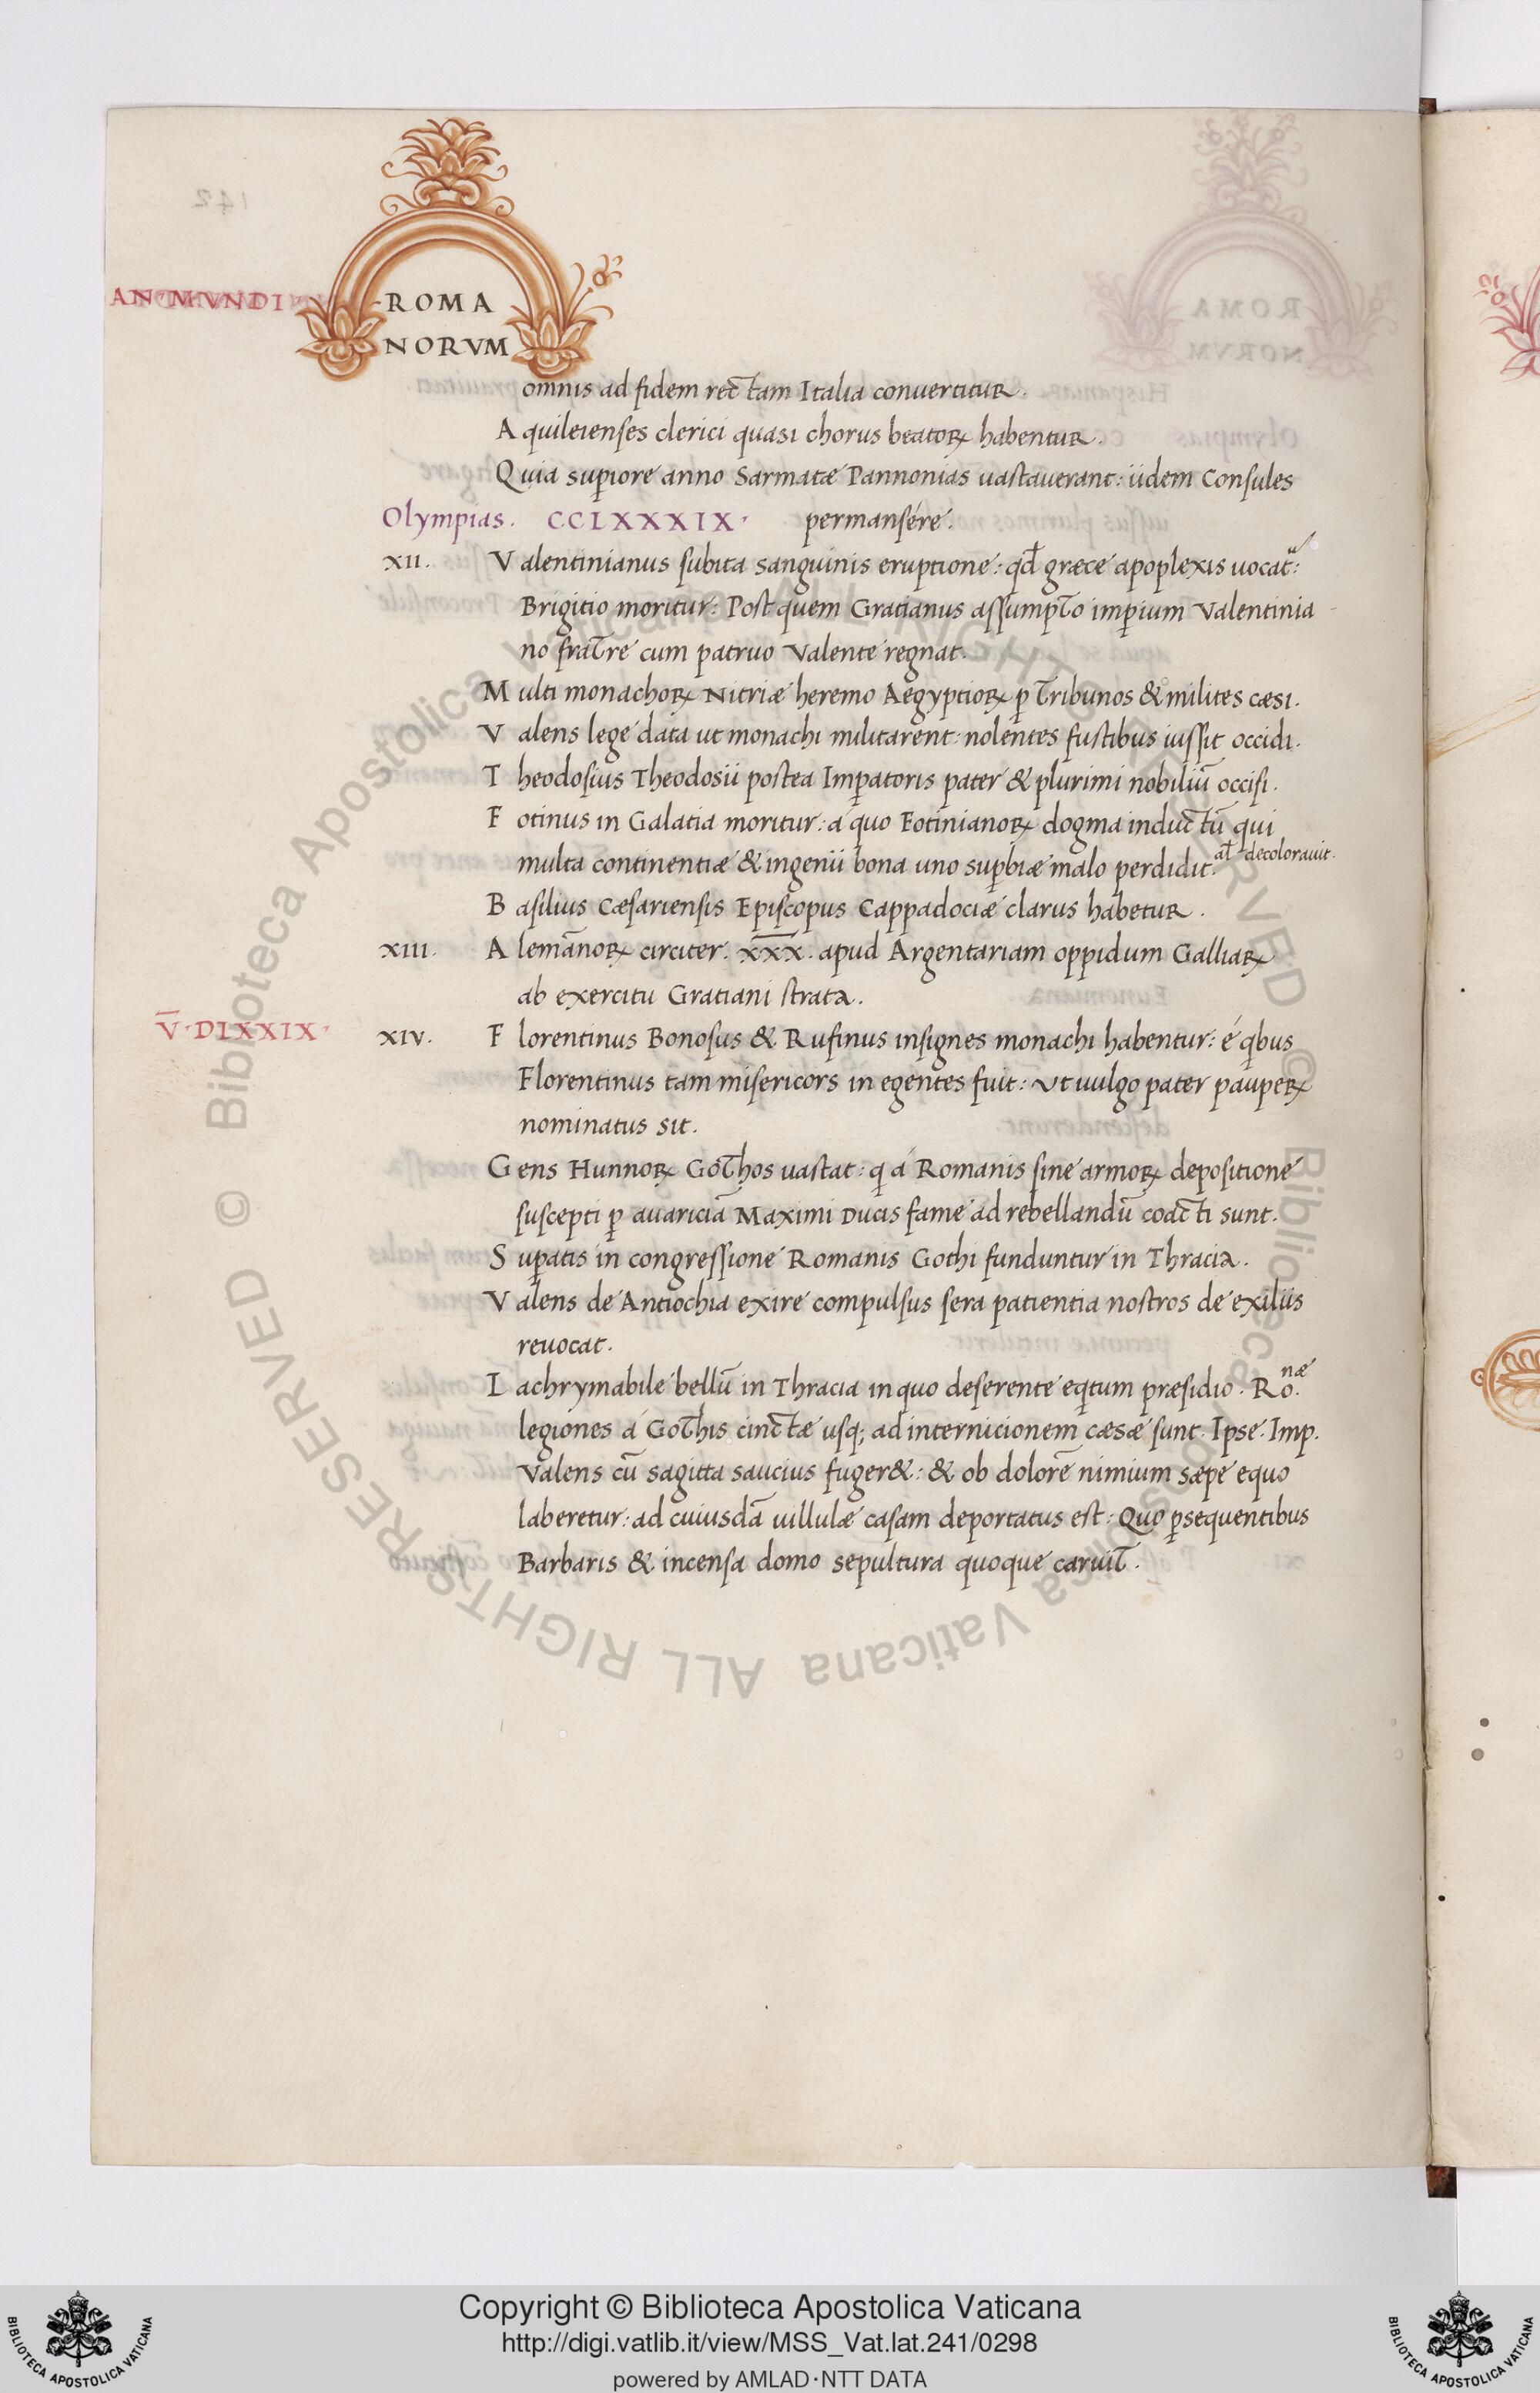 AN MVNDI
ROMA
NORVM
omnis ad fidem rectam Italia conuertitur.
Aquileienses clerici quasi chorus beatoꝝ habentur.
Quia suꝑiore anno Sarmatæ Pannonias uastauerant: iidem Consules
Olympias. CCLXXXIX. permansére.
XII. Valentinianus subita sanguinis eruptione: qđ græce apoplexis uocat᷑:
Brigitio moritur: Post quem Gratianus assumpto imꝑium Valentinia
no fratre cum patruo Valente regnat.
Multi monachoꝝ Nitriæ heremo Aegyptioꝝ ꝑ Tribunos & milites cæsi.
Valens lege data ut monachi militarent: nolentes fustibus iussit occidi.
Theodosius Theodosii postea Imꝑatoris pater & plurimi nobiliū occisi.
Fotinus in Galatia moritur: á quo Fotinianoꝝ dogma inductū qui
multa continentiæ & ingenii bona uno suꝑbiæ malo perdidit. al decolorauit.
Basilius Cæsariensis Episcopus Cappadociæ clarus habetur.
XIII. Alemānoꝝ circiter. X̅X̅X̅. apud Argentariam oppidum Galliaꝝ
ab exercitu Gratiani strata.
V̅·DLXXIX·
XIV. Florentinus Bonosus & Rufinus insignes monachi habentur: é qbus
Florentinus tam misericors in egentes fuit: Vt uulgo pater pauperꝝ
nominatus sit.
Gens Hunnoꝝ Gothos uastat: q á Romanis sine armoꝝ depositione
suscepti ꝑ auariciā Maximi Ducis fame ad rebellandū coacti sunt.
Suꝑatis in congressione Romanis Gothi funduntur in Thracia.
Valens de Antiochia exire compulsus sera patientia nostros de exiliis
reuocat.
Lachrymabile bellū in Thracia in quo deserente eqtum præsidio. Ro.næ
legiones á Gothis cinctæ usq; ad internicionem cæsæ sunt. Ipse. Imp.
Valens cū sagitta saucius fuger&: & ob dolorē nimium sæpe equo
laberetur: ad cuiusdā uillulæ casam deportatus est: Quo ꝑsequentibus
Barbaris & incensa domo sepultura quoque caruit.
Copyright © Biblioteca Apostolica Vaticana
http://digi.vatlib.it/view/MSS_Vat.lat.241/0298
powered by AMLAD·NTT DATA